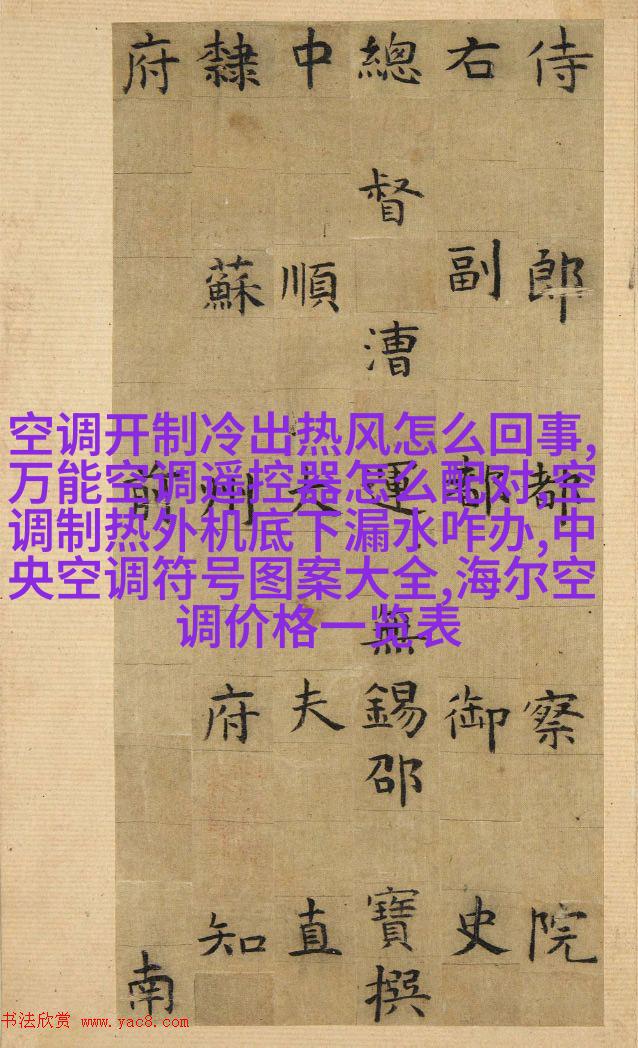 侍郎都察院
右副都御史
總督漕運無錫邵寶撰
中順大夫直
隸蘇州府知
府前南
空调开制冷出热风怎么回事,
万能空调遥控器怎么配对,空
调制热外机底下漏水咋办,中
央空调符号图案大全,海尔空
调价格一览表
书法欣赏 www.yac8.com